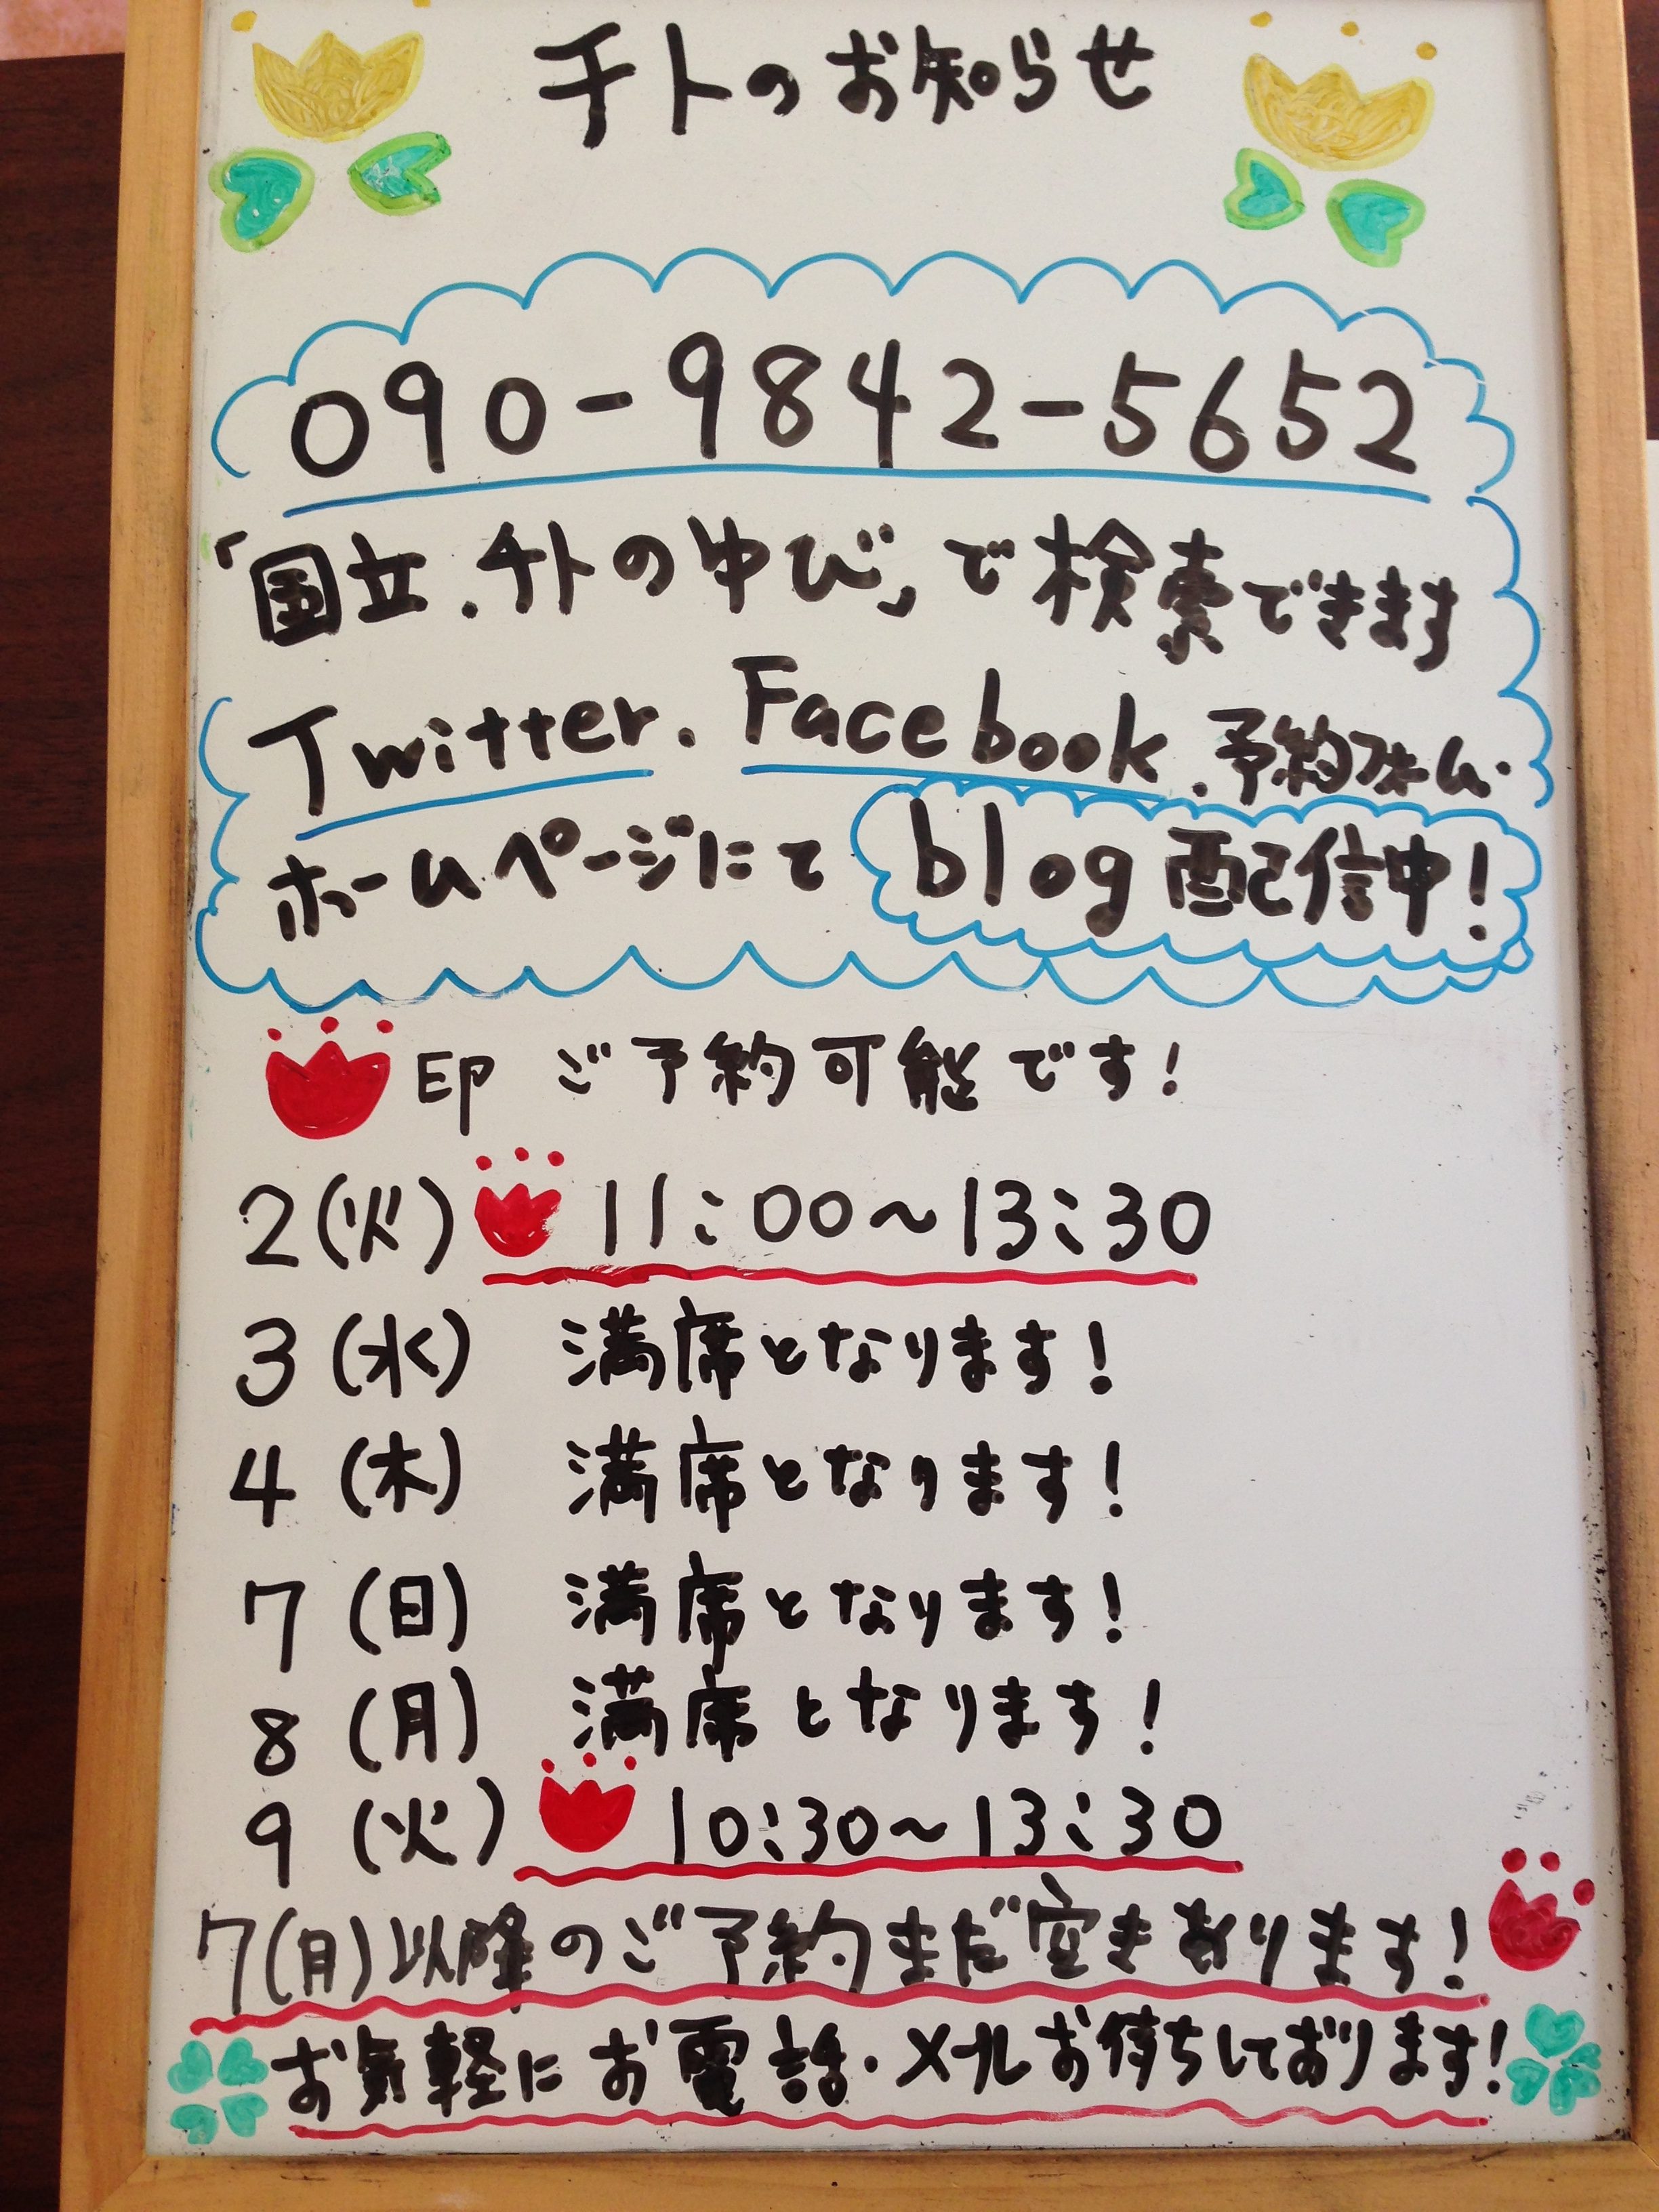 チトのお知らせ
090-9842-5652
「国立.チトのゆび」で検索できます
Twitter.Facebook.予約フォーム.
ホームページにて blog配信中!
印 ご予約可能です!
2(火) 11:00~13:30
3(水) 満席となります!
4(木) 満席となります!
7(日) 満席となります!
8(月) 満席となります!
9(火) 10:30~13:30
7(月)以降のご予約まだ空きあります!
お気軽にお電話・メールお待ちしております!